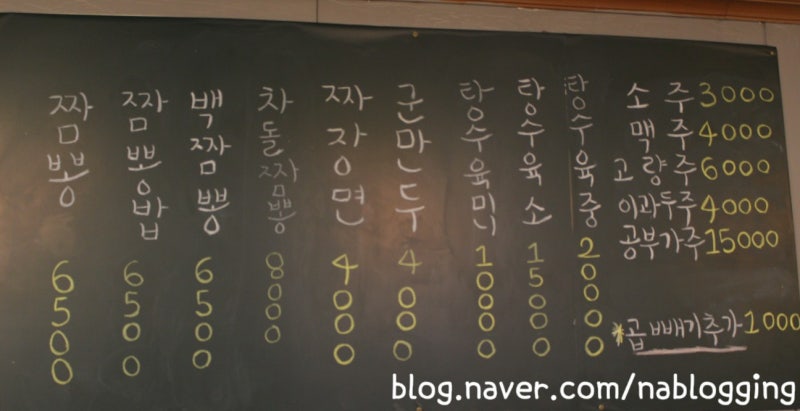 짬뽕 6500
짬뽕밥 6500
백짬뽕 6500
차돌짬뽕 8000
짜장면 4000
군만두 4000
탕수육미니 10000
탕수육소 15000
탕수육중 20000
소주 3000
맥주 4000
고량주 6000
이과두주 4000
공부가주 15000
*곱빼기추가 1000
blog.naver.com/nablogging